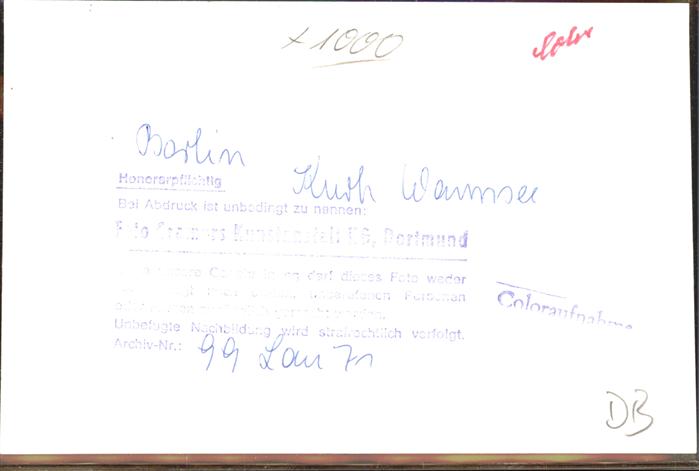 x 1000
Color
Berlin
Honorarpflichtig
Wannsee
Bei Abdruck ist unbedingt zu nennen:
Foto Cramers Kunstanstalt KG, Dortmund
darf dieses Foto weder
Personen
Coloraufnahme
Unbefugte Nachbildung wird strafrechtlich verfolgt.
Archiv-Nr.: 99 Lau 71
DB